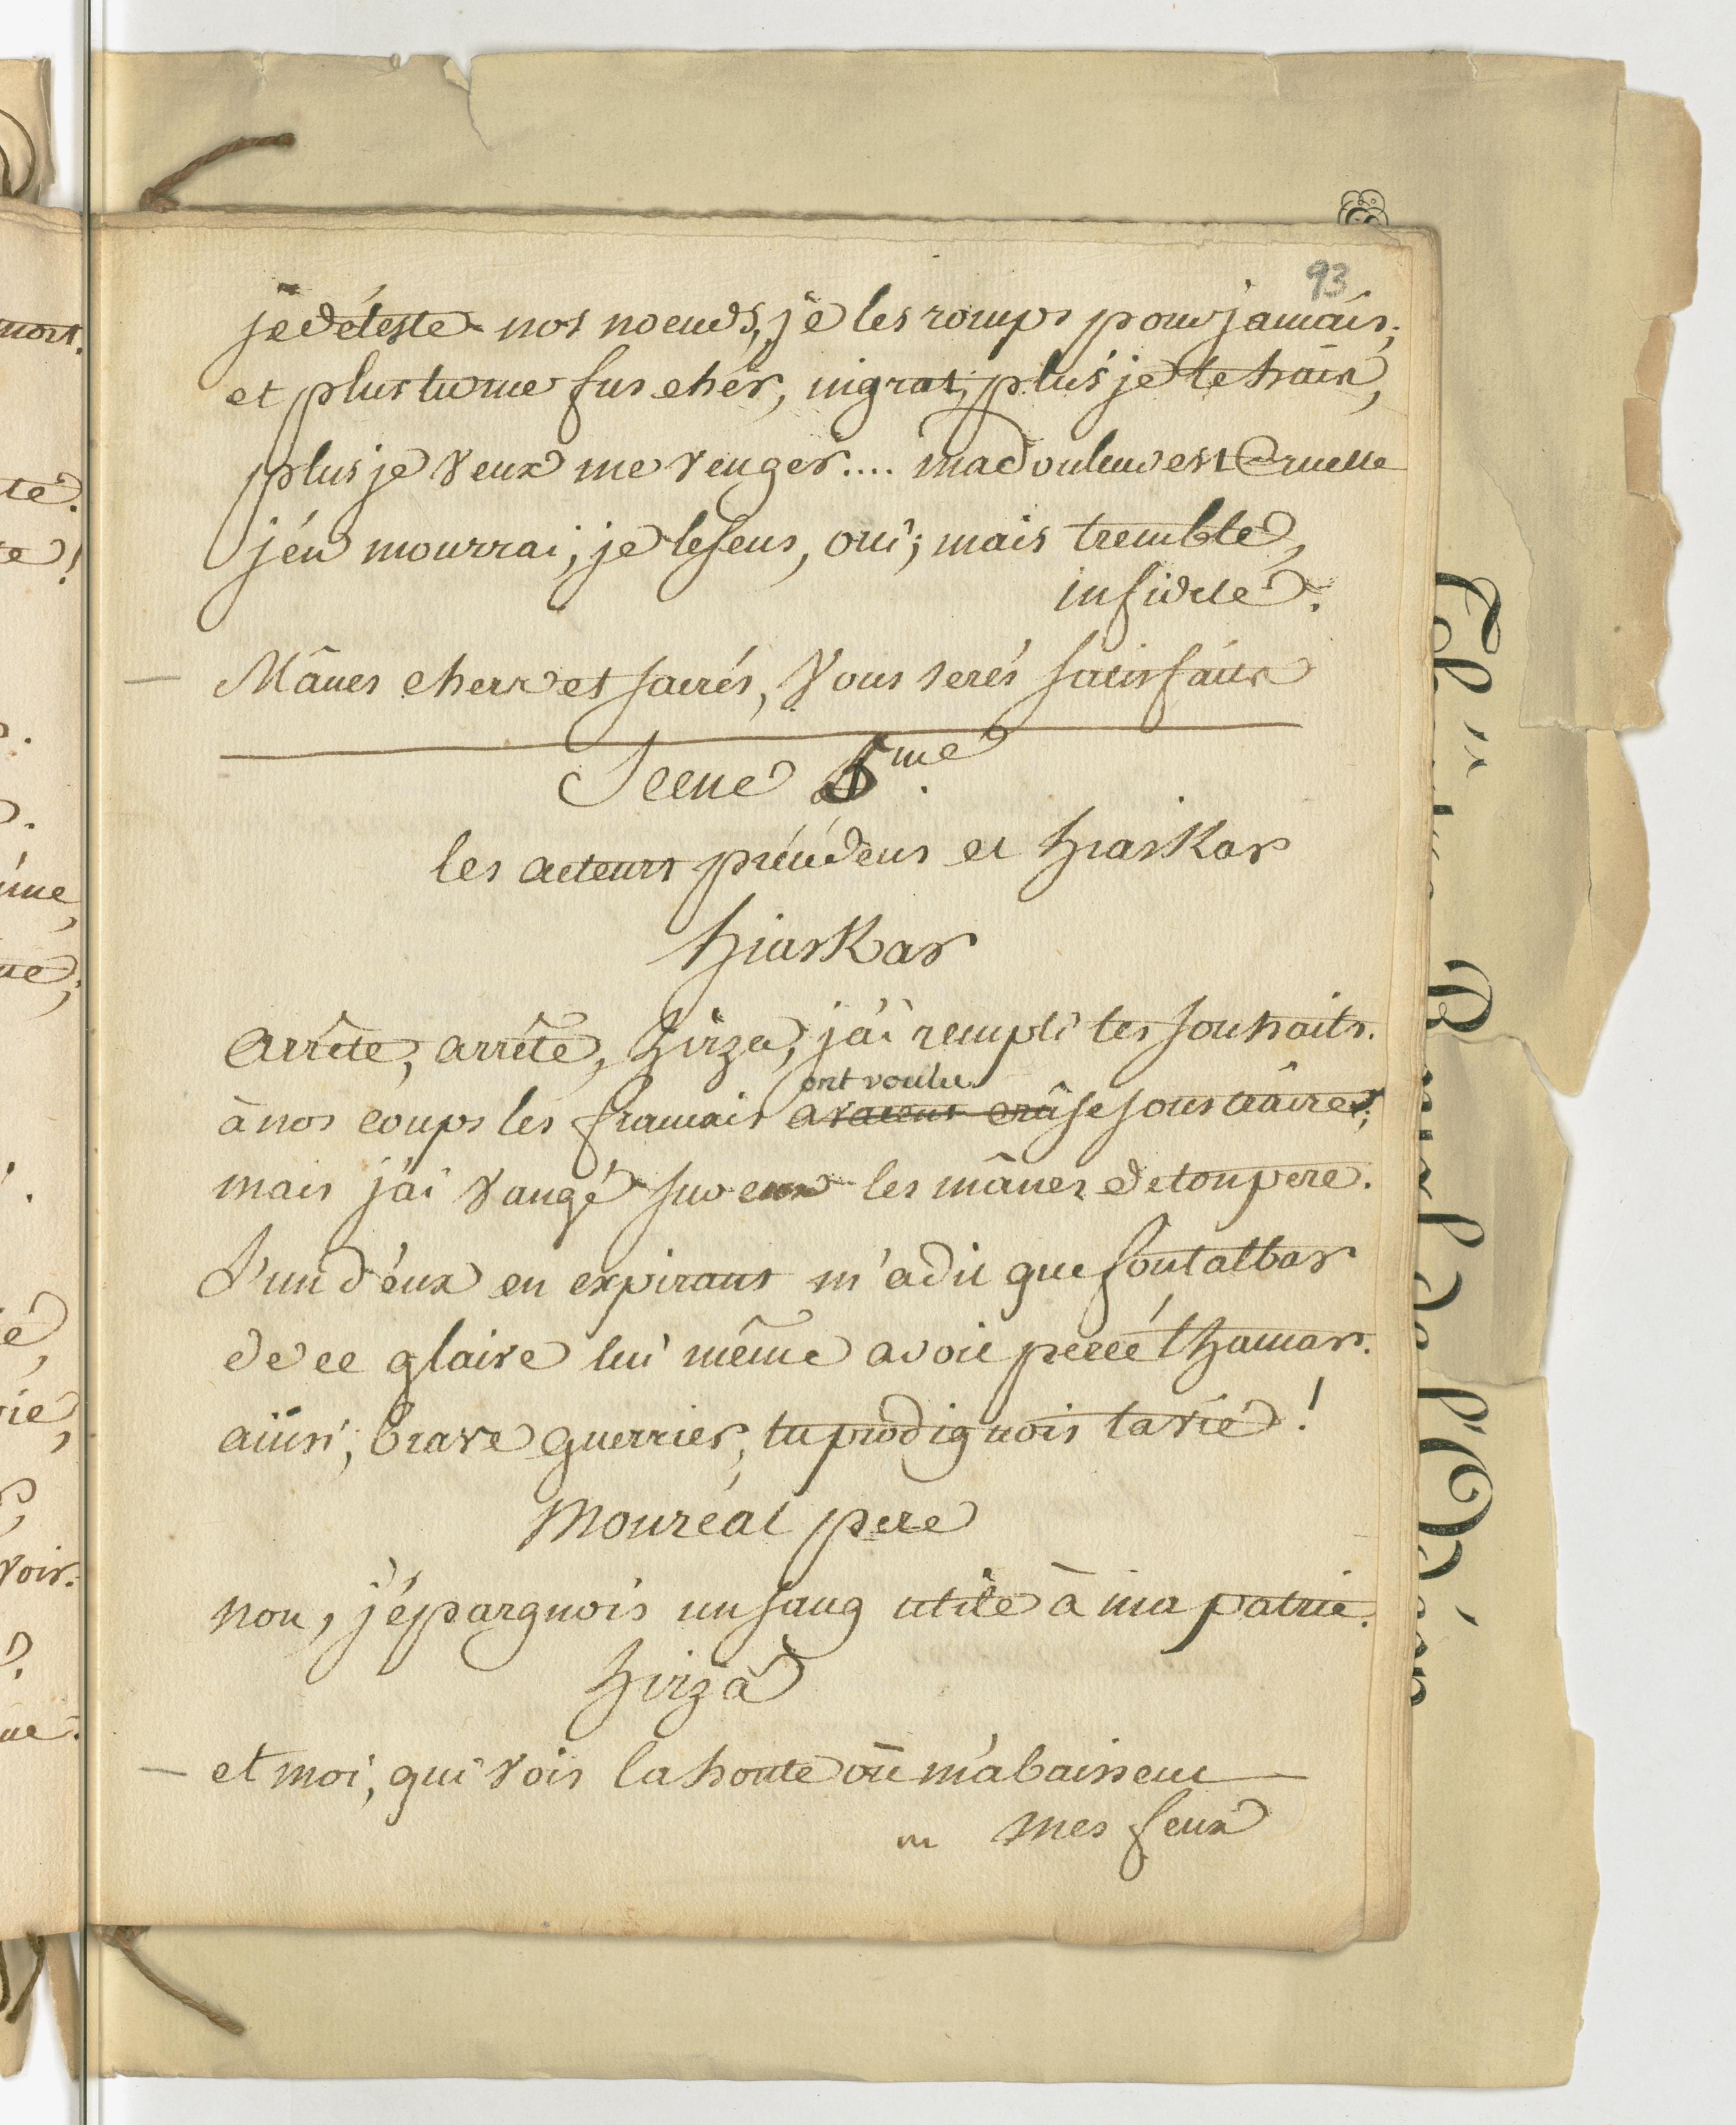 93
je déteste nos noeuds, je les romps pour jamais;
et plus tu me fus cher, ingrat, plus je te hais,
plus je veux me venger.... ma douleur est cruelle
j'en mourrai, je le sens, oui; mais tremble,
infidele.
— Mânes chers et sacrés, vous serés satisfaits
Scene 5me.
les acteurs précédens et hiaskar
hiaskar
arrête, arrête, hirza, j'ai rempli tes souhaits.
ont voulu
à nos coups les francais avaient crû se soustraire;
mais j'ai vangé sur eux les mânes de ton pere.
L'un d'eux en expirant m'a dit que fontalbar
de ce glaive lui même avoit percé thamar.
ainsi, brave guerrier, tu prodiguois ta vie!
Monréal pere
non, j'épargnois un sang utile à ma patrie.
hirza
— et moi, qui vois la honte où m'abaissent
mes feux
mort.
te.
te!
ime,
ue;
é,
vie,
voir.
ue.